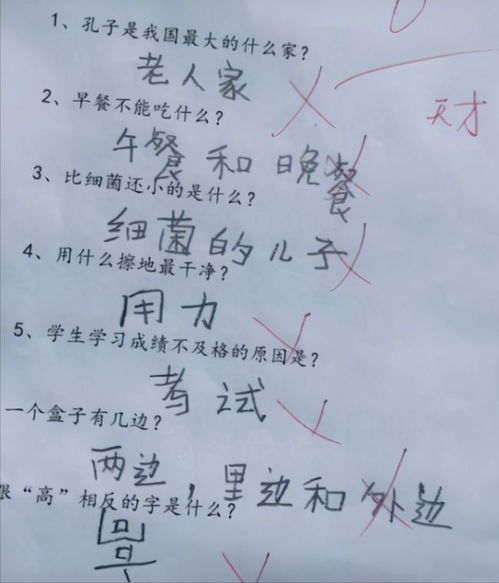 1、孔子是我国最大的什么家？
老人家
天才
2、早餐不能吃什么？
午餐和晚餐
3、比细菌还小的是什么？
细菌的儿子
4、用什么擦地最干净？
用力
5、学生学习成绩不及格的原因是？
考试
一个盒子有几边？
两边，里边和外边
跟“高”相反的字是什么？